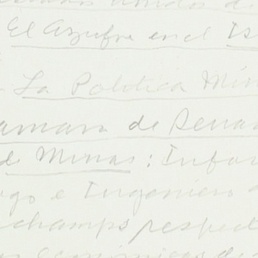 Unidos de
El Azufre en el Is
La Política Min
amara de Senad
de Minas: Infor
go e Ingeniero
champs respect